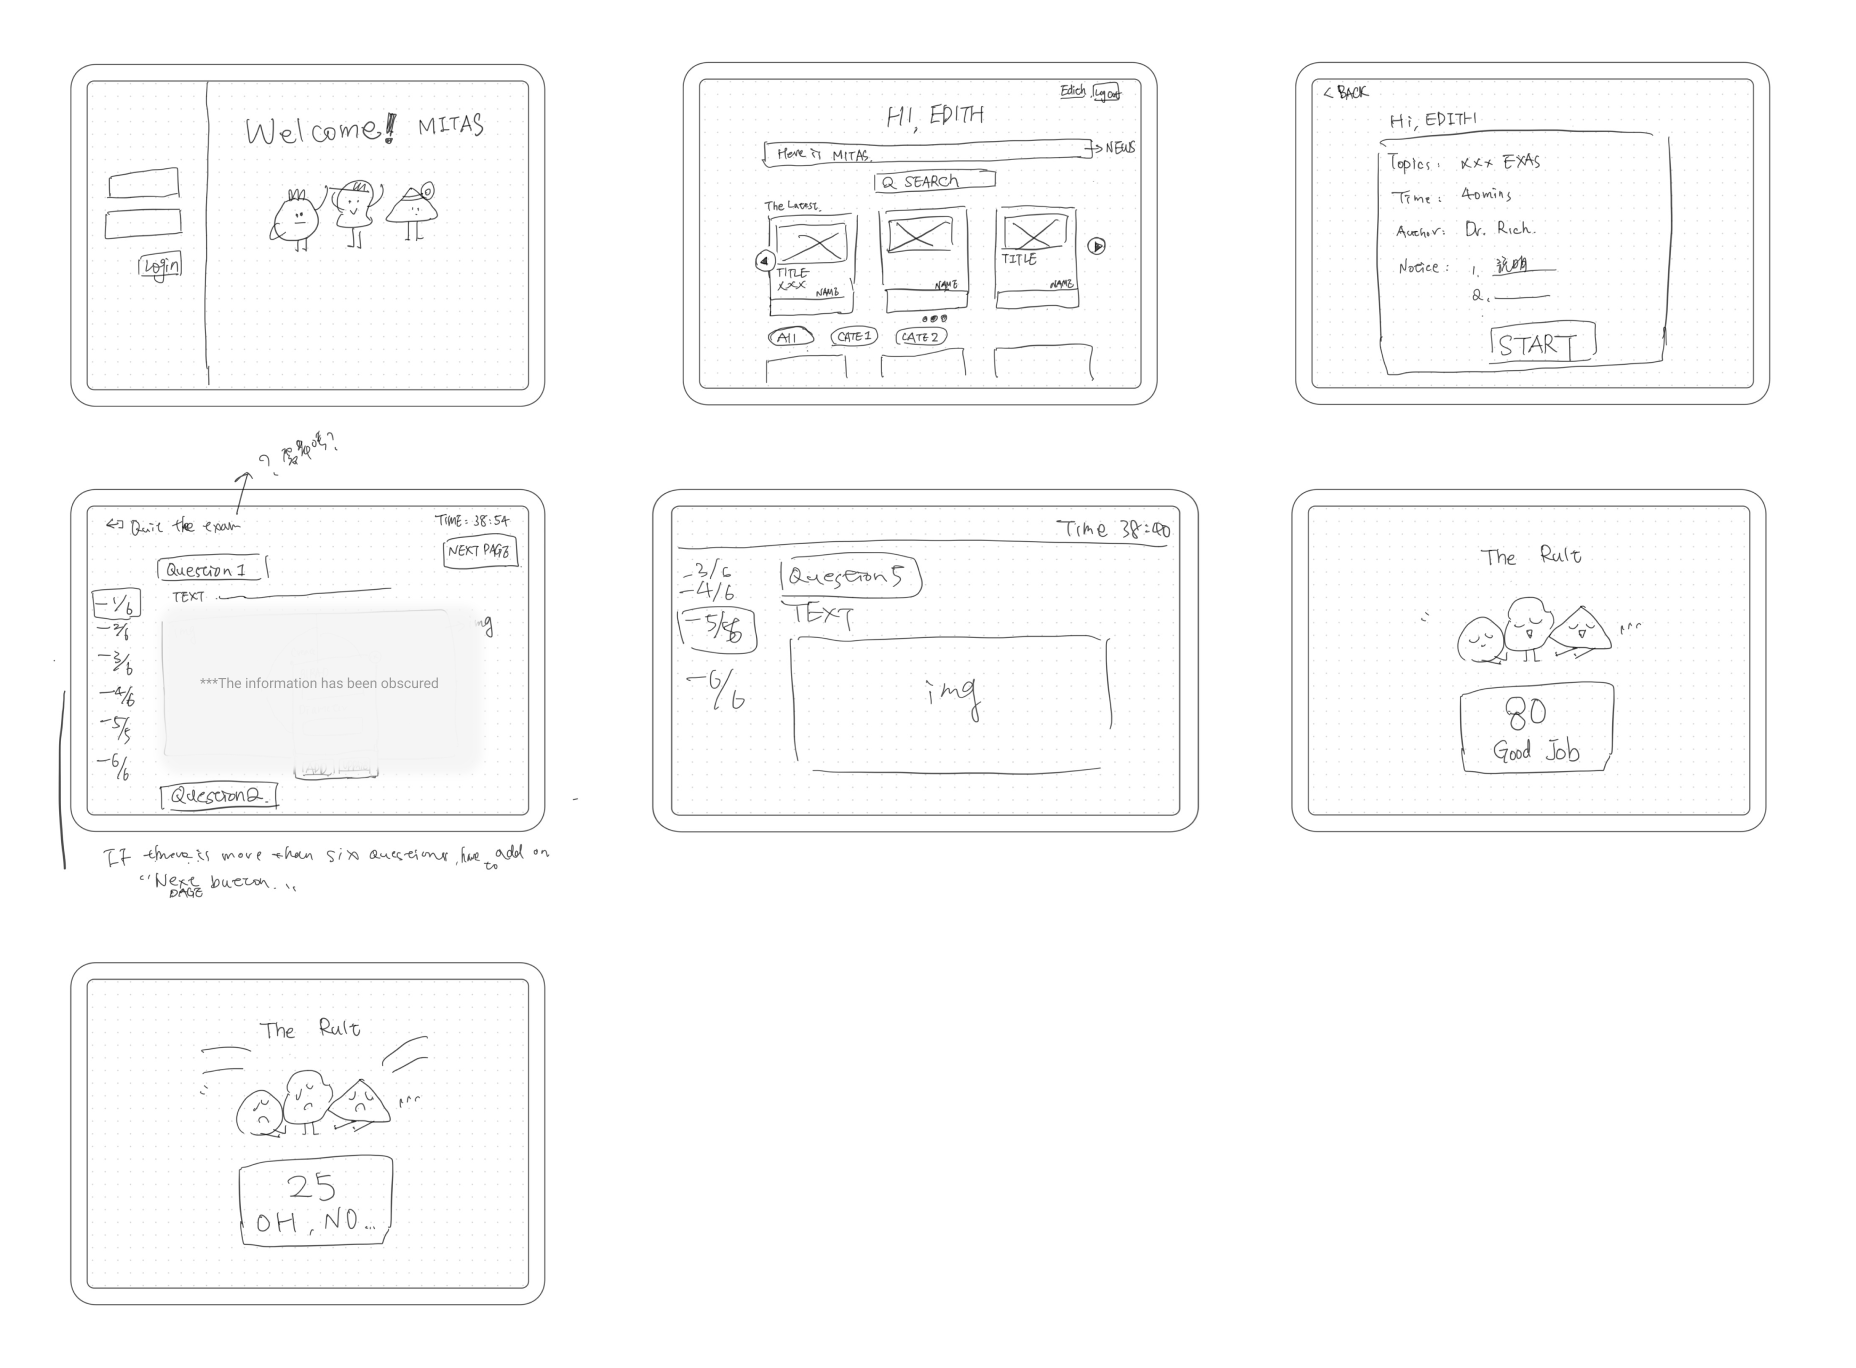 Welcome! MITAS
Login
Edith Log out
HI, EDITH
Here is MITAS.
→ NEWS
Q SEARCH
The Latest.
TITLE
XXX
NAME
NAME
TITLE
NAME
All
CATE 1
CATE 2
< BACK
Hi, EDITH
Topics: xxx EXAs
Time: 40mins
Author: Dr. Rich.
Notice: 1. 說明
2.
START
Quit the exam
TIME: 38:54
NEXT PAGE
Question 1
TEXT
-1/6
-2/6
-3/6
-4/6
-5/5
-6/6
***The information has been obscured
Question 2.
If there is more than six questions, have to add on
"Next PAGE button..."
Time 38:40
-3/6
-4/6
-5/6
-6/6
Question 5
TEXT
img
The Rult
80
Good Job
The Rult
25
OH, NO...